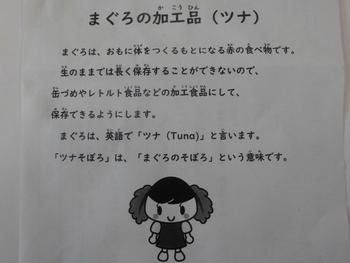 まぐろの加工品（ツナ）
まぐろは、おもに体をつくるもとになる赤の食べ物です。
生のままでは長く保存することができないので、
缶づめやレトルト食品などの加工食品にして、
保存できるようにします。
まぐろは、英語で「ツナ（Tuna)」と言います。
「ツナそぼろ」は、「まぐろのそぼろ」という意味です。